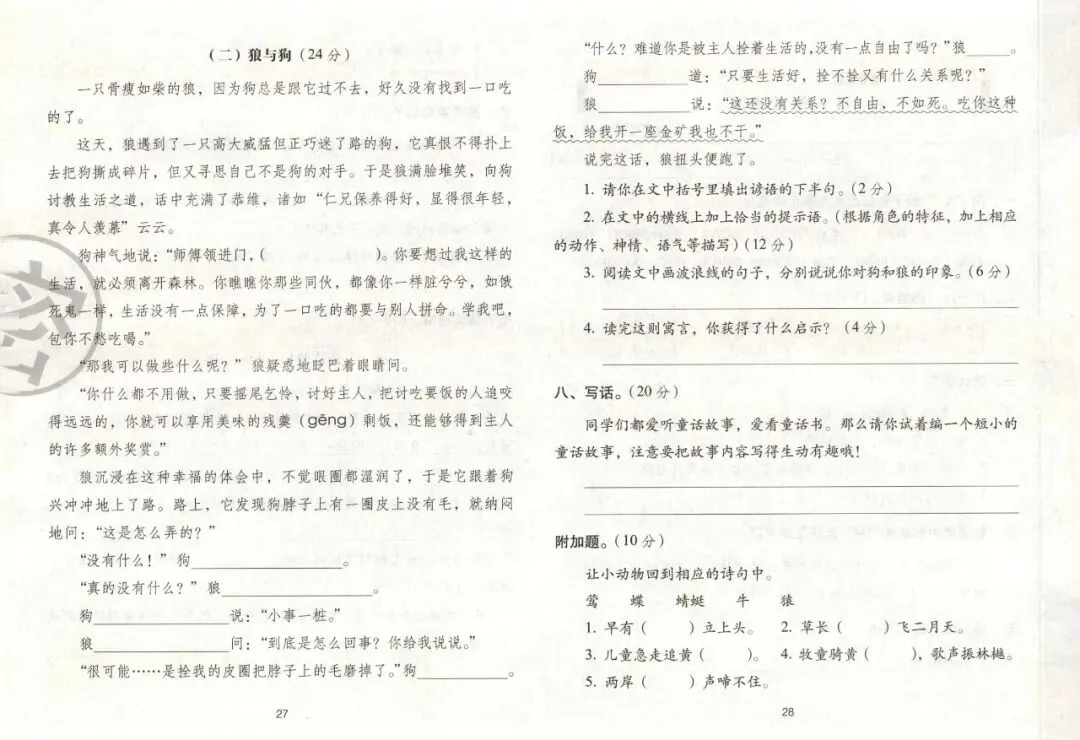 （二）狼与狗（24分）
一只骨瘦如柴的狼，因为狗总是跟它过不去，好久没有找到一口吃
的了。
这天，狼遇到了一只高大威猛但正巧迷了路的狗，它真恨不得扑上
去把狗撕成碎片，但又寻思自己不是狗的对手。于是狼满脸堆笑，向狗
讨教生活之道，话中充满了恭维，诸如“仁兄保养得好，显得很年轻，
真令人羡慕”云云。
狗神气地说：“师傅领进门，（　　　　）。你要想过我这样的
生活，就必须离开森林。你瞧瞧你那些同伙，都像你一样脏兮兮，如饿
死鬼一样，生活没有一点保障，为了一口吃的都要与别人拼命。学我吧，
包你不愁吃喝。”
“那我可以做些什么呢？”狼疑惑地眨巴着眼睛问。
“你什么都不用做，只要摇尾乞怜，讨好主人，把讨吃要饭的人追咬
得远远的，你就可以享用美味的残羹（gēng）剩饭，还能够得到主人
的许多额外奖赏。”
狼沉浸在这种幸福的体会中，不觉眼圈都湿润了，于是它跟着狗
兴冲冲地上了路。路上，它发现狗脖子上有一圈皮上没有毛，就纳闷
地问：“这是怎么弄的？”
“没有什么！”狗____________。
“真的没有什么？”狼____________。
狗____________说：“小事一桩。”
狼____________问：“到底是怎么回事？你给我说说。”
“很可能……是拴我的皮圈把脖子上的毛磨掉了。”狗________。
27
“什么？难道你是被主人拴着生活的，没有一点自由了吗？”狼____。
狗________道：“只要生活好，拴不拴又有什么关系呢？”
狼________说：“这还没有关系？不自由，不如死。吃你这种
饭，给我开一座金矿我也不干。”
说完这话，狼扭头便跑了。
1. 请你在文中括号里填出谚语的下半句。（2分）
2. 在文中的横线上加上恰当的提示语。（根据角色的特征，加上相应
的动作、神情、语气等描写）（12分）
3. 阅读文中画波浪线的句子，分别说说你对狗和狼的印象。（6分）
4. 读完这则寓言，你获得了什么启示？（4分）
八、写话。（20分）
同学们都爱听童话故事，爱看童话书。那么请你试着编一个短小的
童话故事，注意要把故事内容写得生动有趣哦！
附加题。（10分）
让小动物回到相应的诗句中。
莺　蝶　蜻蜓　牛　猿
1. 早有（　　）立上头。　2. 草长（　　）飞二月天。
3. 儿童急走追黄（　　）。　4. 牧童骑黄（　　），歌声振林樾。
5. 两岸（　　）声啼不住。
28